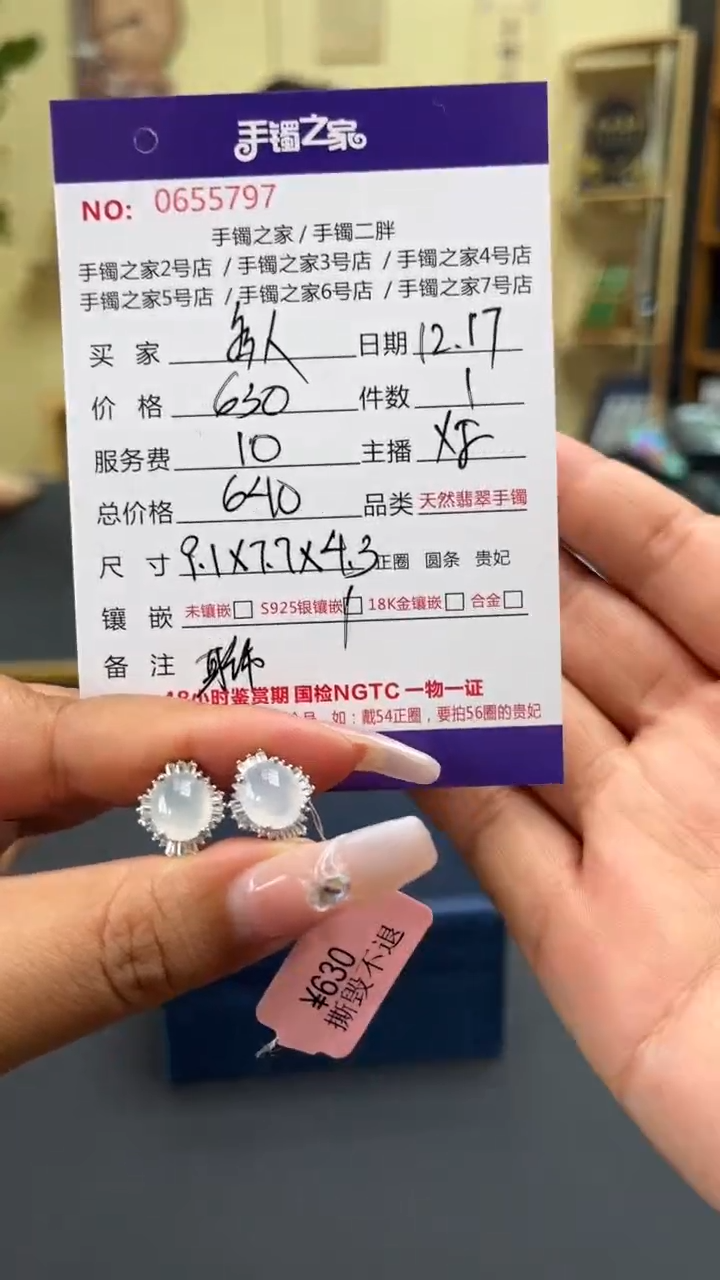 手镯之家
NO: 0655797
手镯之家 / 手镯二胖
手镯之家2号店 / 手镯之家3号店 / 手镯之家4号店
手镯之家5号店 / 手镯之家6号店 / 手镯之家7号店
买家 日期 12.17
价格 630 件数 1
服务费 10 主播
总价格 640 品类 天然翡翠手镯
尺寸 9.1X7.7X4.3 正圈 圆条 贵妃
镶嵌 未镶嵌 S925银镶嵌 18K金镶嵌 合金
备注
48小时鉴赏期 国检NGTC 一物一证
如：戴54正圈，要拍56圈的贵妃
¥630
撕毁不退